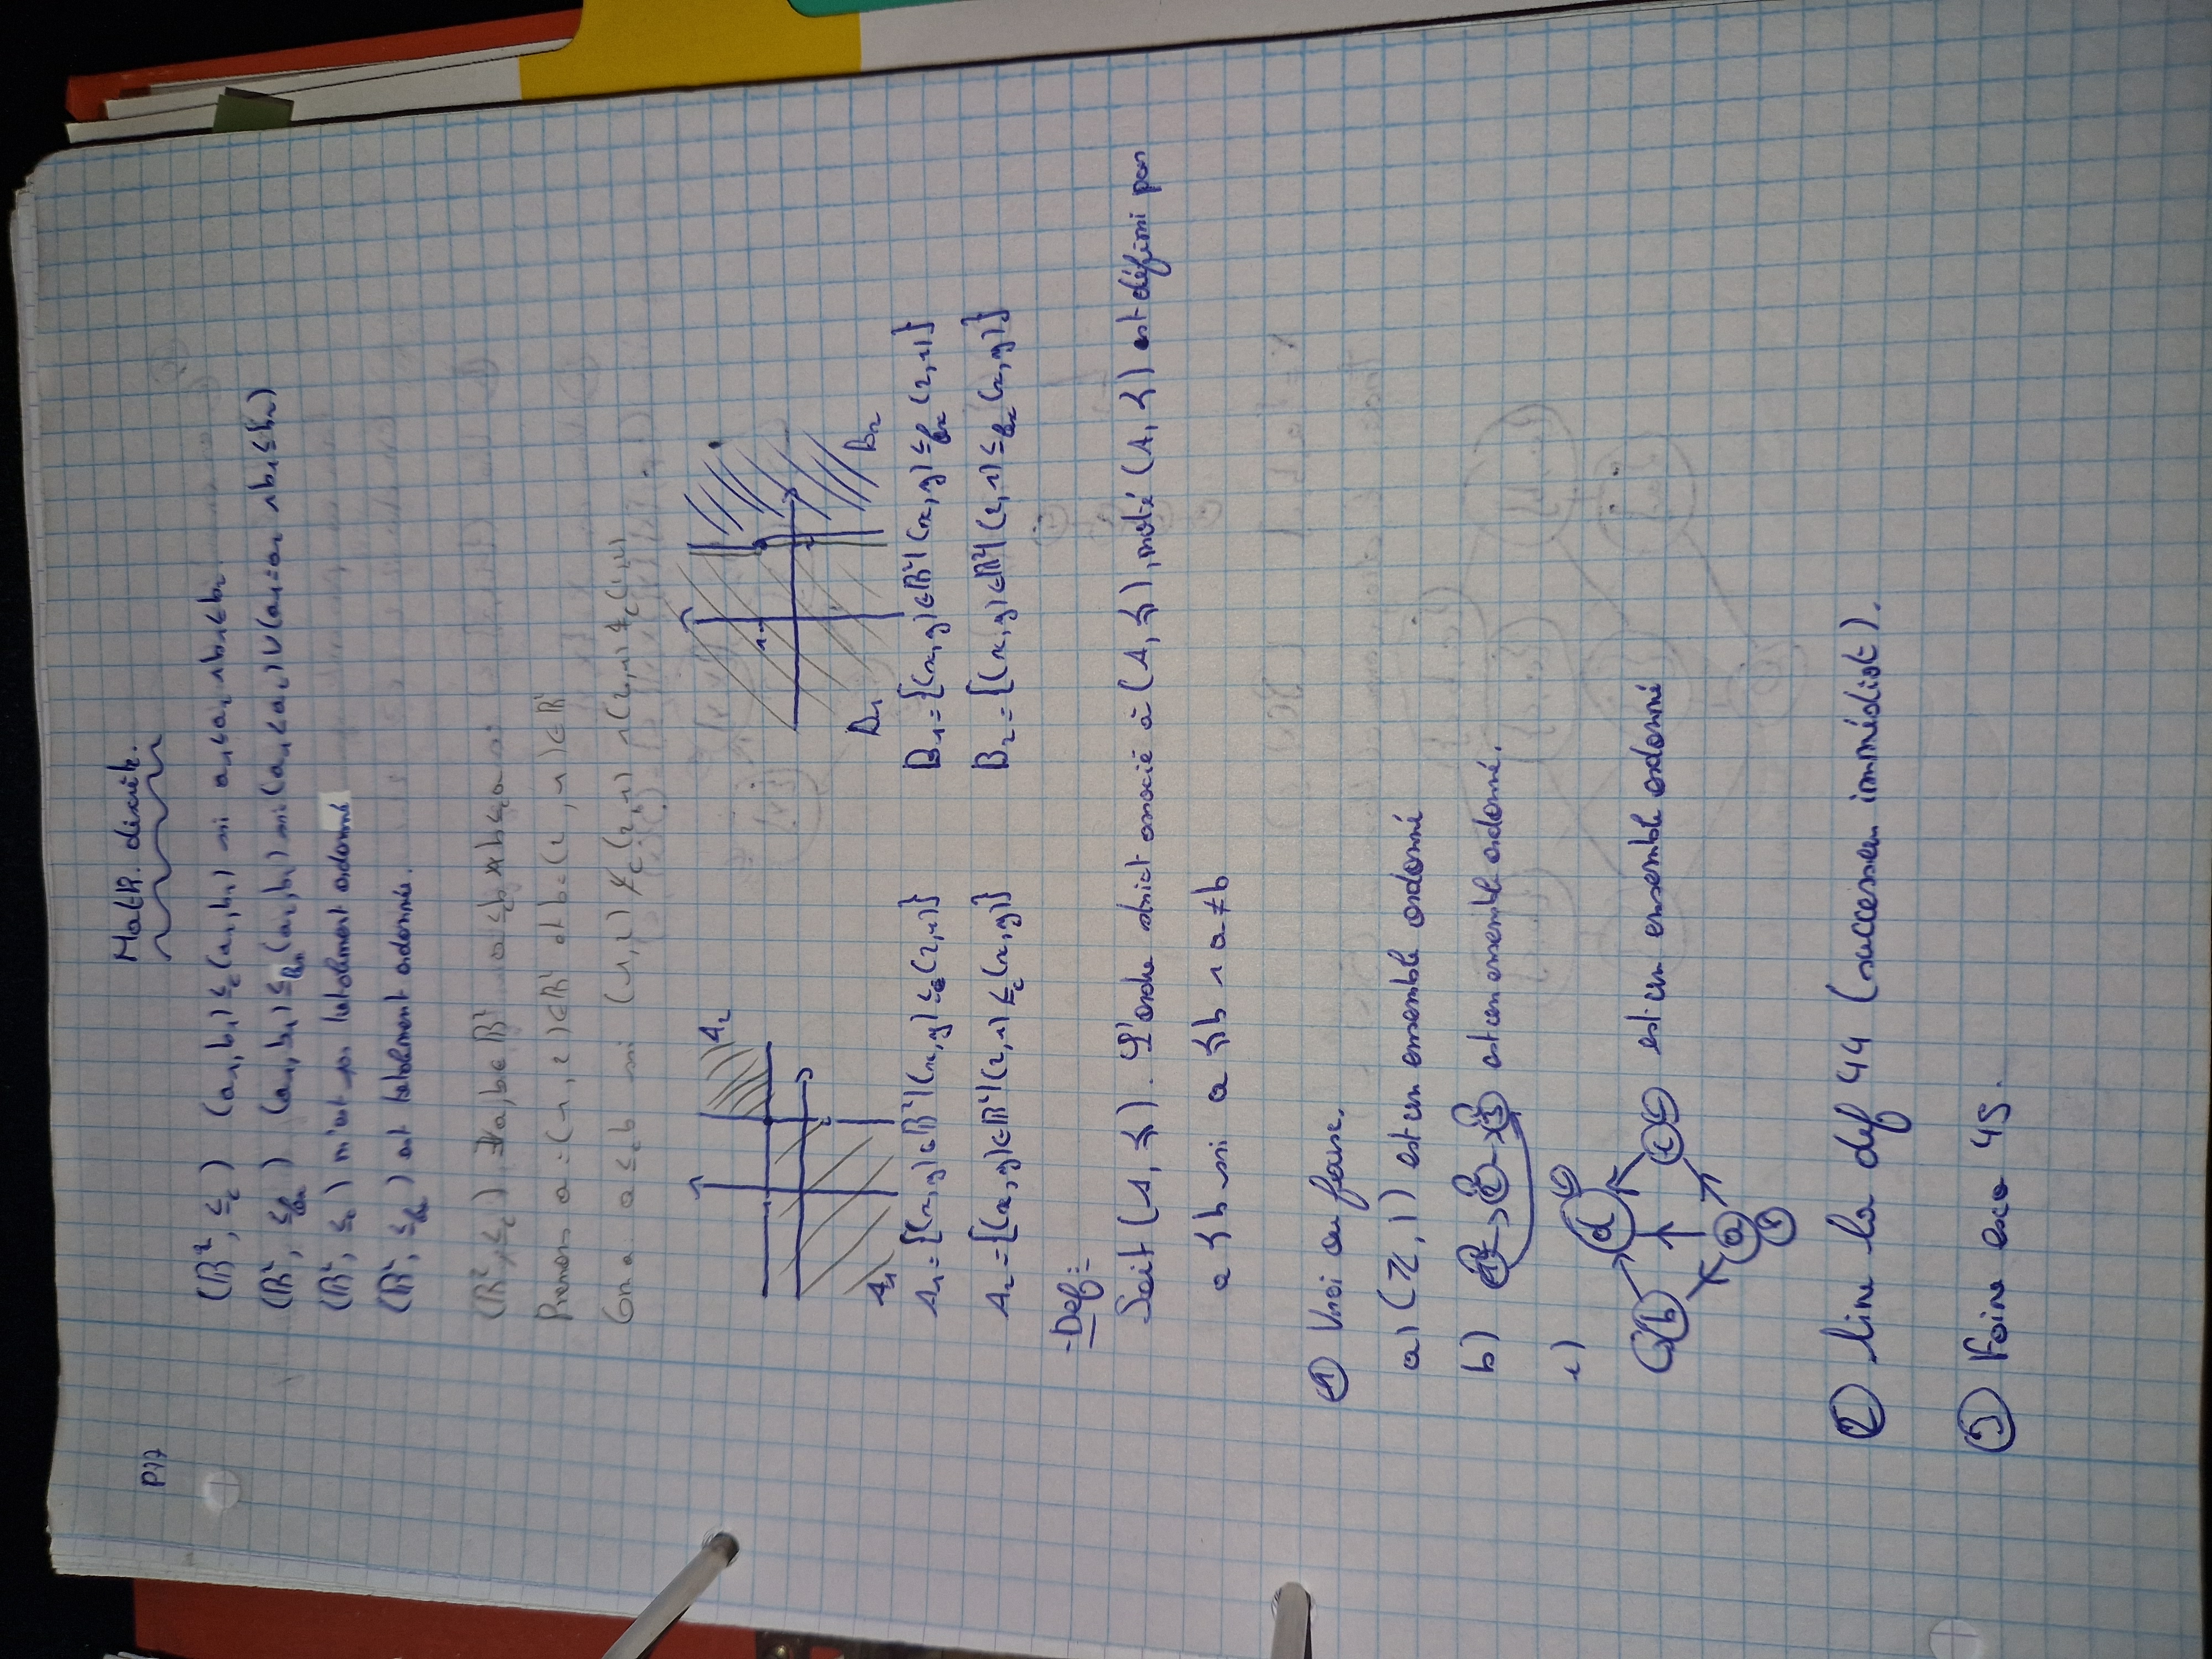 Math. discrèt.
P17
(ℝ², ≤c) (a₁,b₁) ≤c (a₁,b₁) ssi a₁≤a₂ ∧ b₁≤b₂
(ℝ², ≤lex) (a₁,b₁) ≤lex (a₂,b₂) ssi (a₁<a₂) ∨ (a₁=a₂ ∧ b₁≤b₂)
(ℝ², ≤c) n'est pas totalement ordonné
(ℝ², ≤lex) est totalement ordonnée.
(ℝ², ≤c) a,b∈ℝ² a ≤c b b ≤c a
Prenons a=(1,2)∈ℝ² et b=(2,1)∈ℝ²
On a a ≤c b ssi (1,2) ≰c (2,1) ∧ (2,1) ≰c (1,2)
A₂
1
2
A₁
1
2
B₁ B₂
A₁ = {(x,y)∈ℝ² | (x,y) ≤c (2,1)} B₁ = {(x,y)∈ℝ² | (x,y) ≤lex (2,1)}
A₂ = {(x,y)∈ℝ² | (2,1) ≤c (x,y)} B₂ = {(x,y)∈ℝ² | (2,1) ≤lex (x,y)}
- Def :
Soit (A, ≼). L'ordre strict associé à (A, ≼), noté (A, ≺) est défini par
a ≺ b ssi a ≼ b ∧ a ≠ b
① Vrai ou faux.
a) (ℤ, |) est un ensemble ordonné
b) 1 2 3 est un ensemble ordonné.
c)
d
b c est un ensemble ordonné
a
② lire la def 44 (successeur immédiat).
③ Faire exo 45.